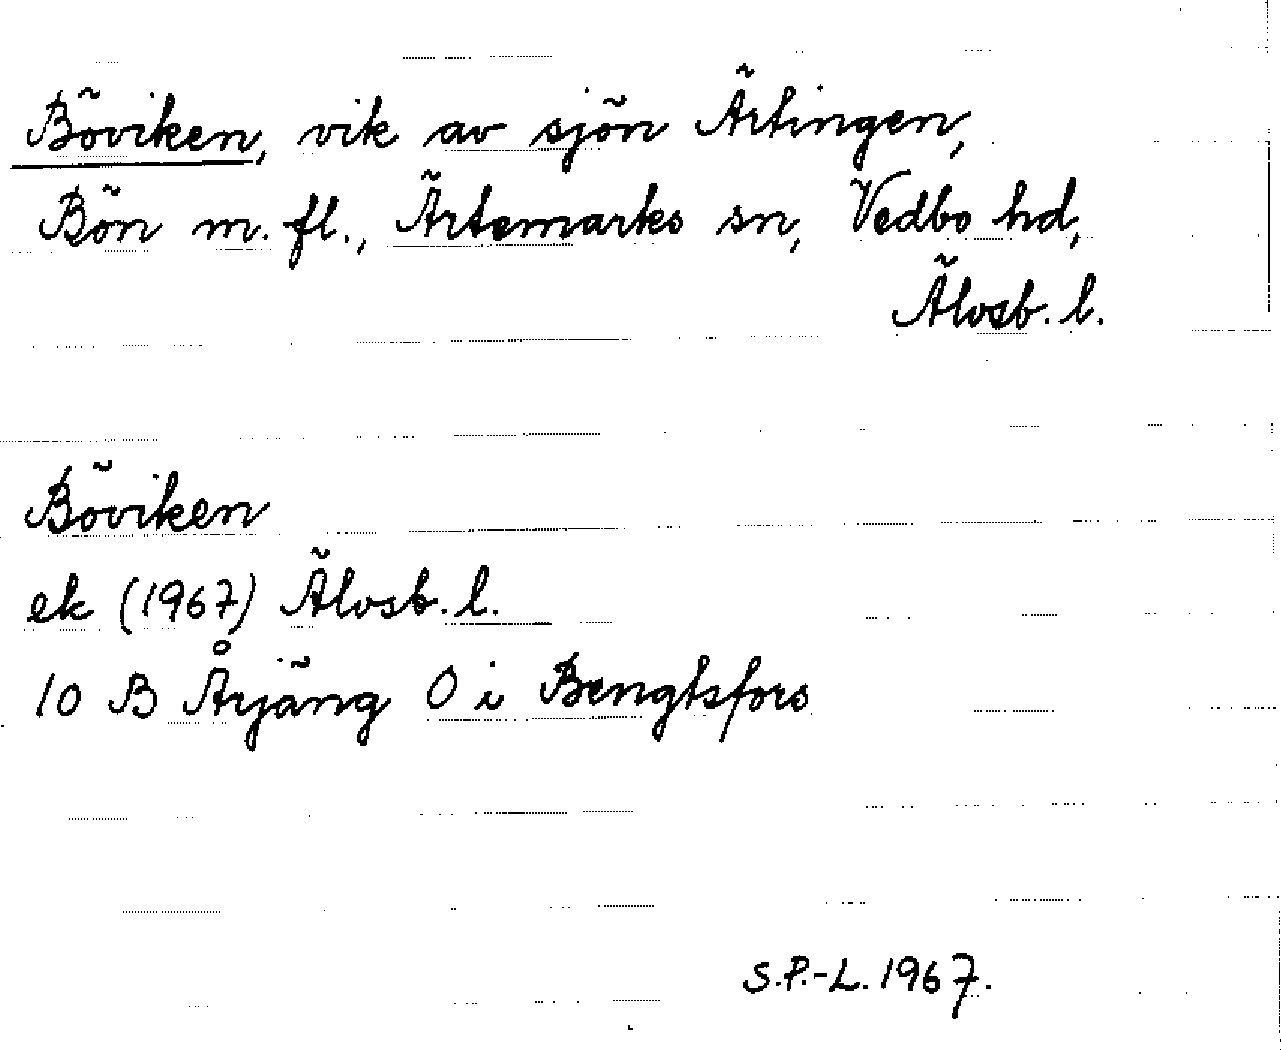 Böviken, vik av sjön Ärtingen,
Bön m. fl., Ärtemarks sn, Vedbo hd,
Älvsb. l.
Böviken
ek (1967) Älvsb. l.
10 B Årjäng O i Bengtsfors
S.P.-L. 1967.